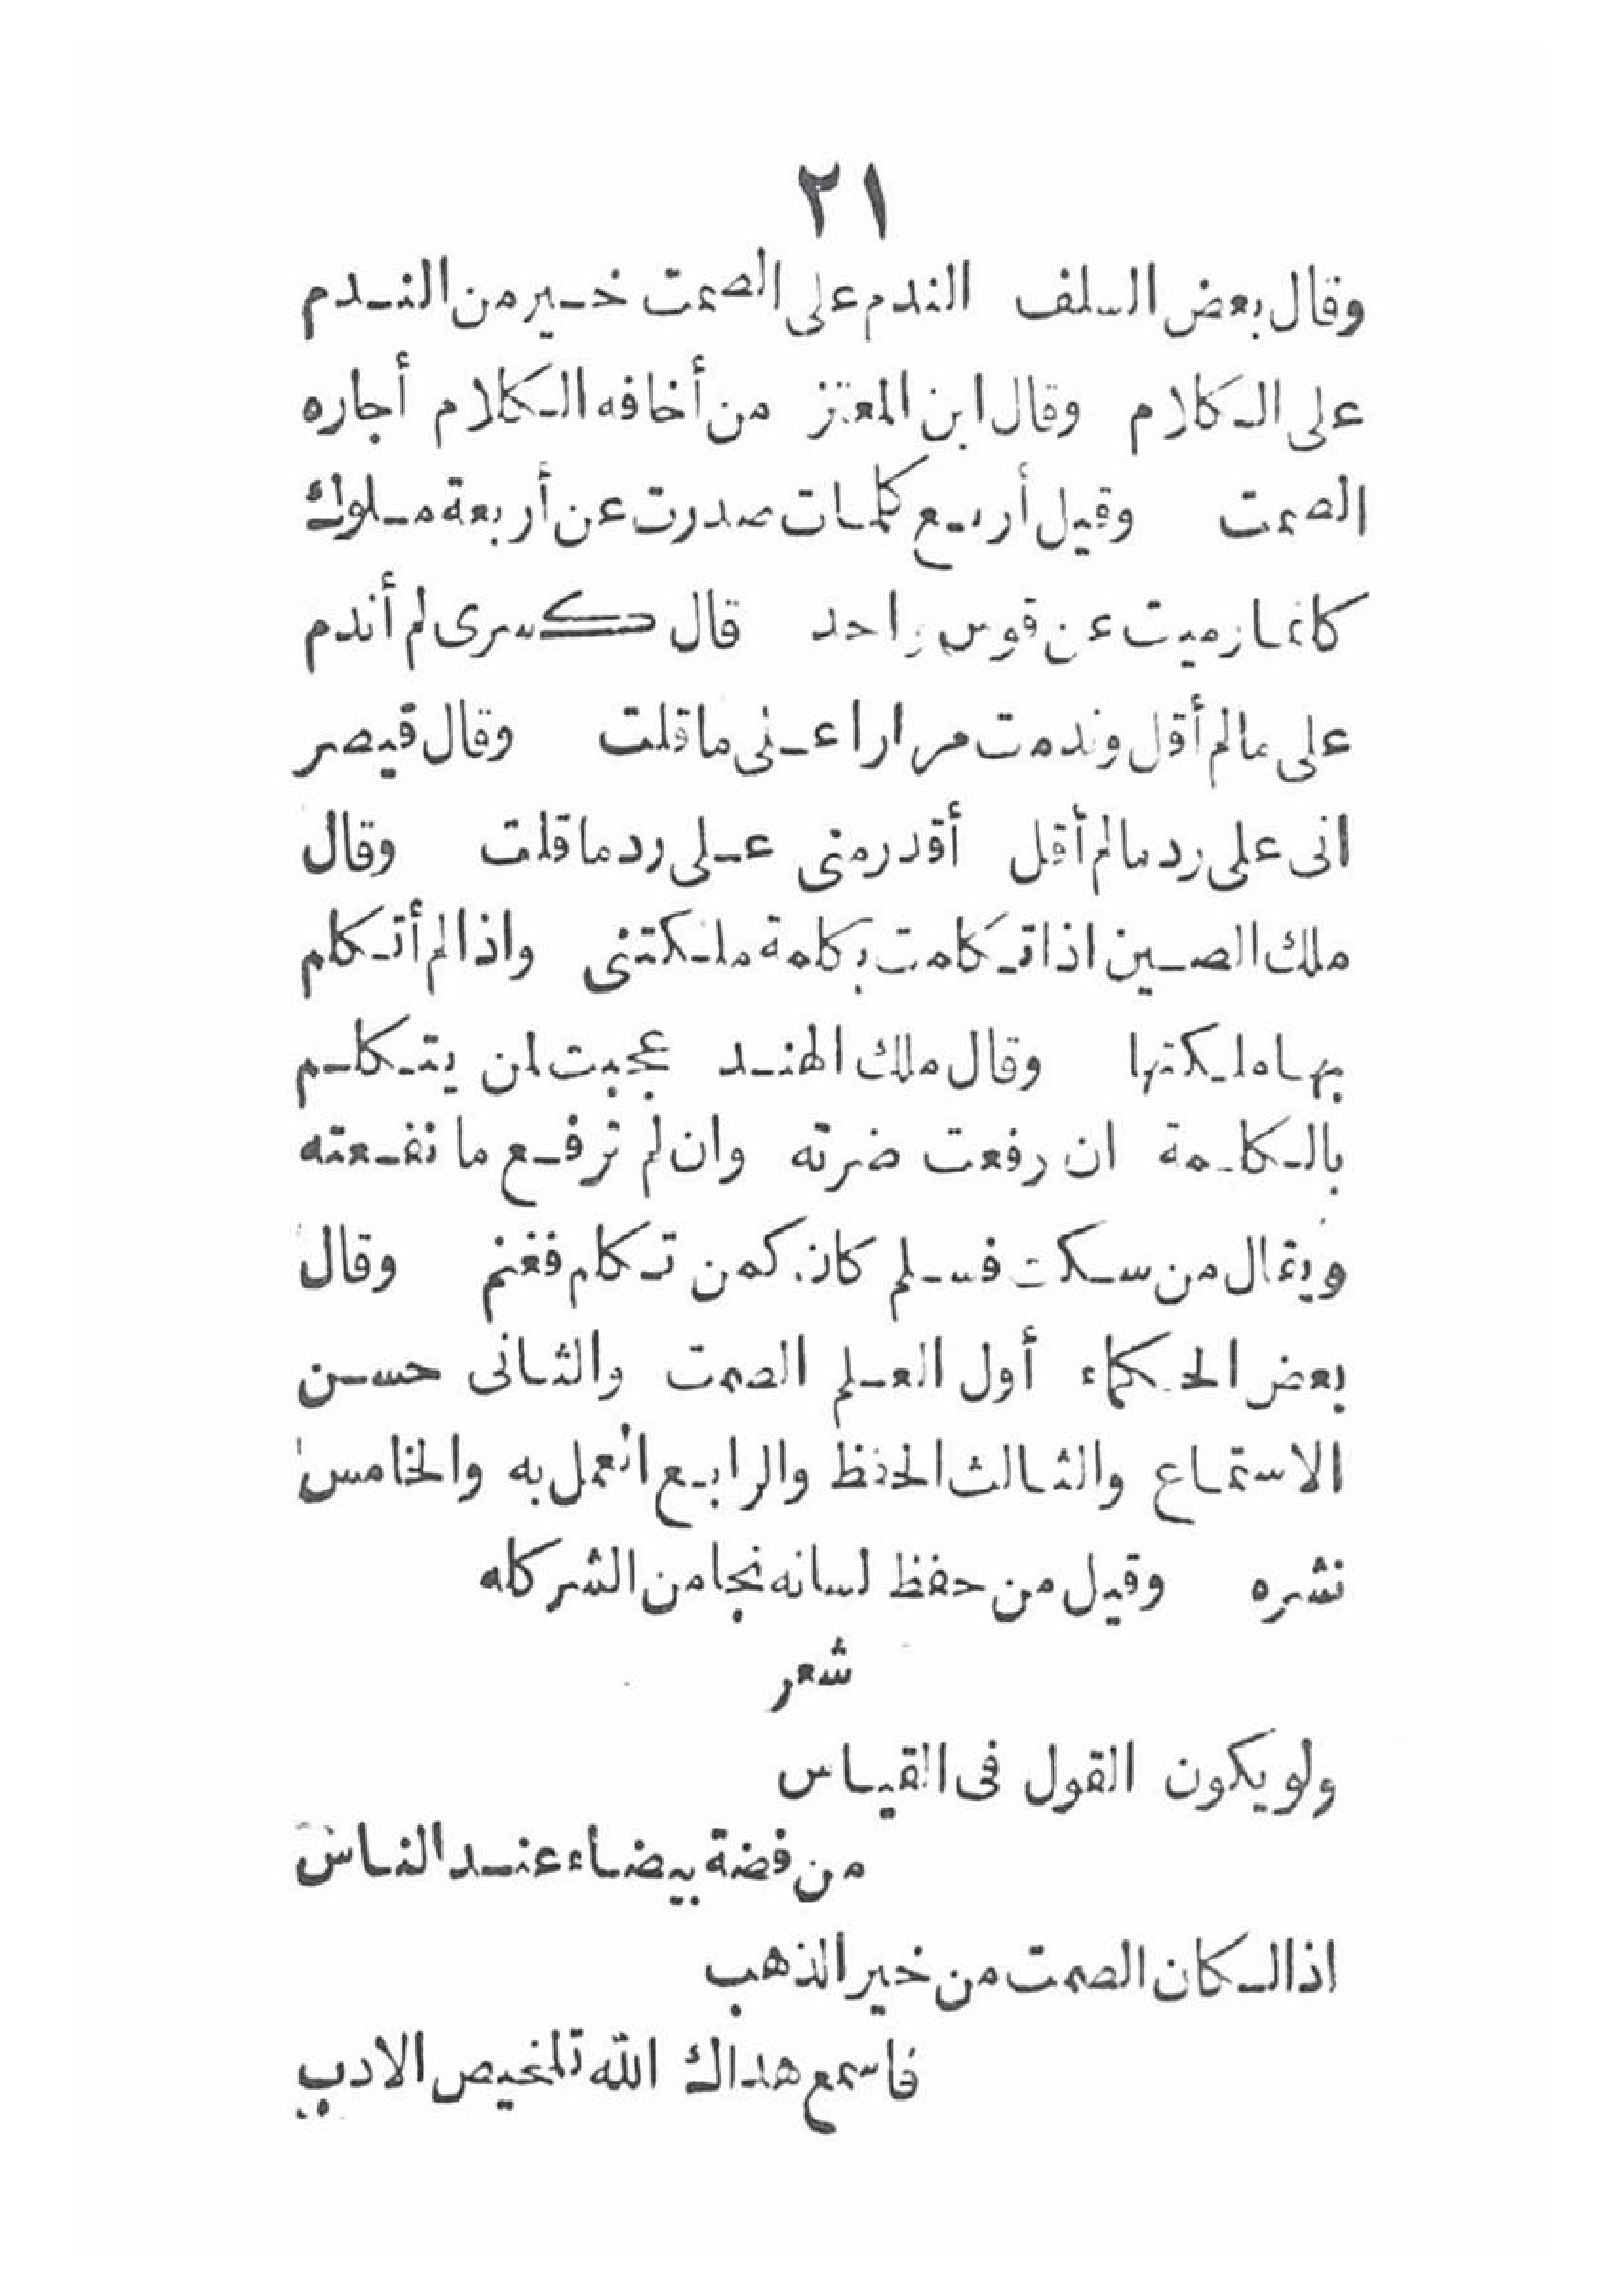 ٢١
وقال بعض السلف الندم على الصمت خير من الندم
على الكلام وقال ابن المعتز من أخافه الكلام أجاره
الصمت وقيل أربع كلمات صدرت عن أربعة ملوك
كانما رميت عن قوس واحد قال كسرى لم أندم
على مالم أقل وندمت مرارا على ما قلت وقال قيصر
انى على رد مالم أقل أقدر منى على رد ما قلت وقال
ملك الصين اذا تكلمت بكلمة ملكتنى واذا لم أتكلم
بها ملكتها وقال ملك الهند عجبت لمن يتكلم
بالكلمة ان رفعت ضرته وان لم ترفع ما نفعته
ويقال من سكت فسلم كان كمن تكلم فغنم وقال
بعض الحكماء أول العلم الصمت والثانى حسن
الاستماع والثالث الحفظ والرابع العمل به والخامس
نشره وقيل من حفظ لسانه نجا من الشر كله
شعر
ولو يكون القول فى القياس
من فضة بيضاء عند الناس
اذا لكان الصمت من خير الذهب
فاسمع هداك الله تلخيص الادب